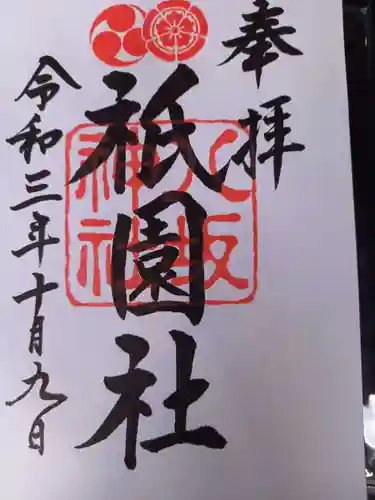 奉拝
八坂神社
祇園社
令和三年十月九日